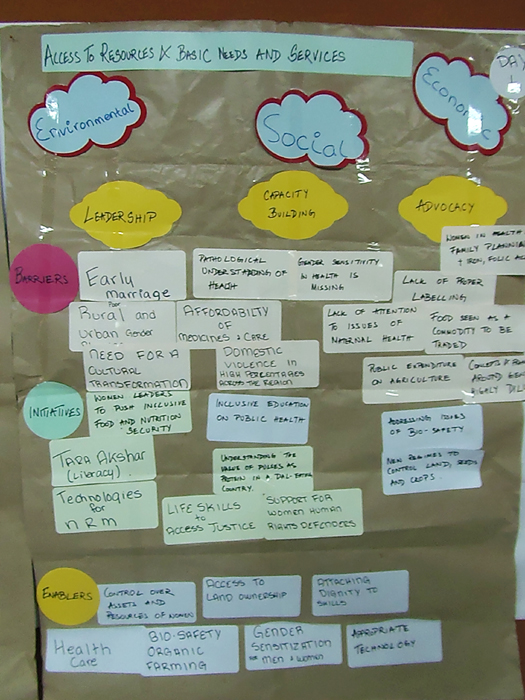 ACCESS TO RESOURCES & BASIC NEEDS AND SERVICES
DAY
1
Environmental
Social
Economic
LEADERSHIP
CAPACITY
BUILDING
ADVOCACY
BARRIERS
Early
marriage
PATHOLOGICAL
UNDERSTANDING OF
HEALTH
GENDER SENSITIVITY
IN HEALTH IS
MISSING
WOMEN IN HEALTH
FAMILY PLANNIN
+ IRON, FOLIC AC
LACK OF PROPER
LABELLING
Poor
Rural and
Urban Gender
AFFORDABILTY
OF
MEDICINES & CARE
LACK OF ATTENTION
TO ISSUES OF
MATERNAL HEALTH
FOOD SEEN AS A
COMMODITY TO BE
TRADED
NEED FOR A
CULTURAL
TRANSFORMATION
DOMESTIC
VIOLENCE IN
HIGH PERCENTAGES
ACROSS THE REGION
PUBLIC EXPENDITURE
ON AGRICULTURE
CONCEPTS &
AROUND GEN
INITIATIVES
WOMEN LEADERS
TO PUSH INCLUSIVE
FOOD AND NUTRITION
SECURITY
INCLUSIVE EDUCATION
ON PUBLIC HEALTH
ADDRESSING ISSUES
OF BIO-SAFETY
TARA AKSHAR
(Literacy).
UNDERSTANDING THE
VALUE OF PULSES AS
PROTEIN IN A DAL-EATING
COUNTRY.
NEW REGIMES TO
CONTROL LAND, SEEDS
AND CROPS.
Technologies
for
NRM
LIFE SKILLS
to
ACCESS JUSTICE
SUPPORT FOR
WOMEN HUMAN
RIGHTS DEFENDERS
ENABLERS
CONTROL OVER
ASSETS AND
RESOURCES OF WOMEN
ACCESS TO
LAND OWNERSHIP
ATTACHING
DIGNITY TO
SKILLS
Health
Care
BIO-SAFETY
ORGANIC
FARMING
GENDER
SENSITIZATION
FOR MEN & WOMEN
APPROPRIATE
TECHNOLOGY